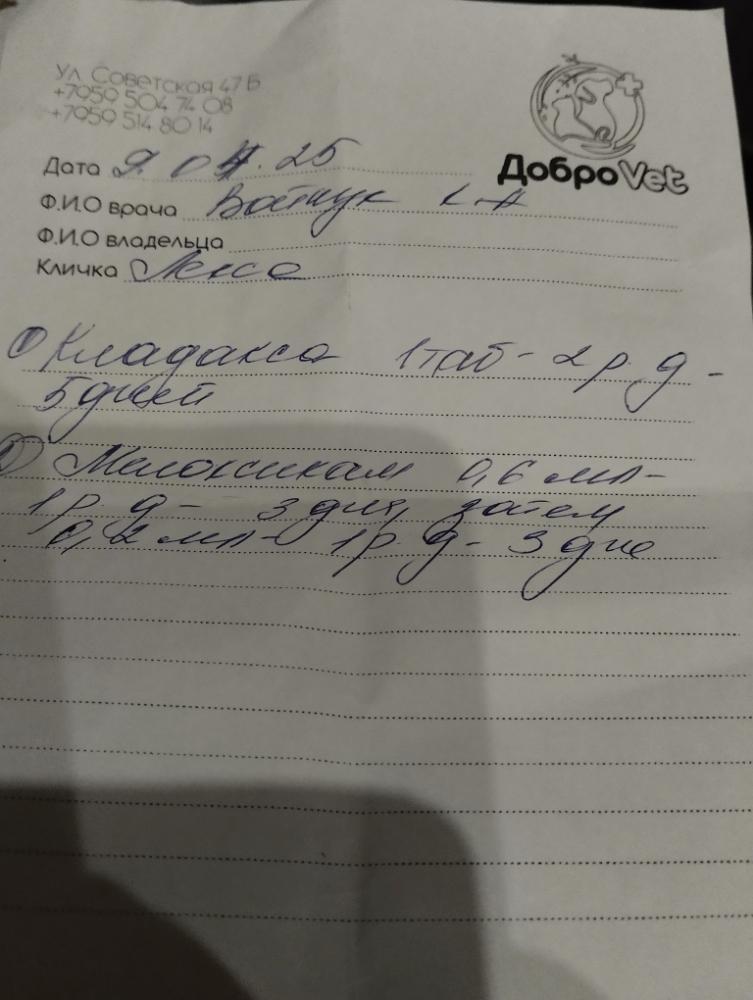 Ул. Советская 47 Б
+7959 504 74 08
+7959 514 80 14
ДоброVet
Дата 9.04.25
Ф.И.О врача Войтук
Ф.И.О владельца
Кличка
① Кладакса 1 таб - 2 р. д -
5 дней
Мелоксикам 0,6 мл -
1 р. д - 3 дня, затем
0,2 мл - 1 р д - 3 дня